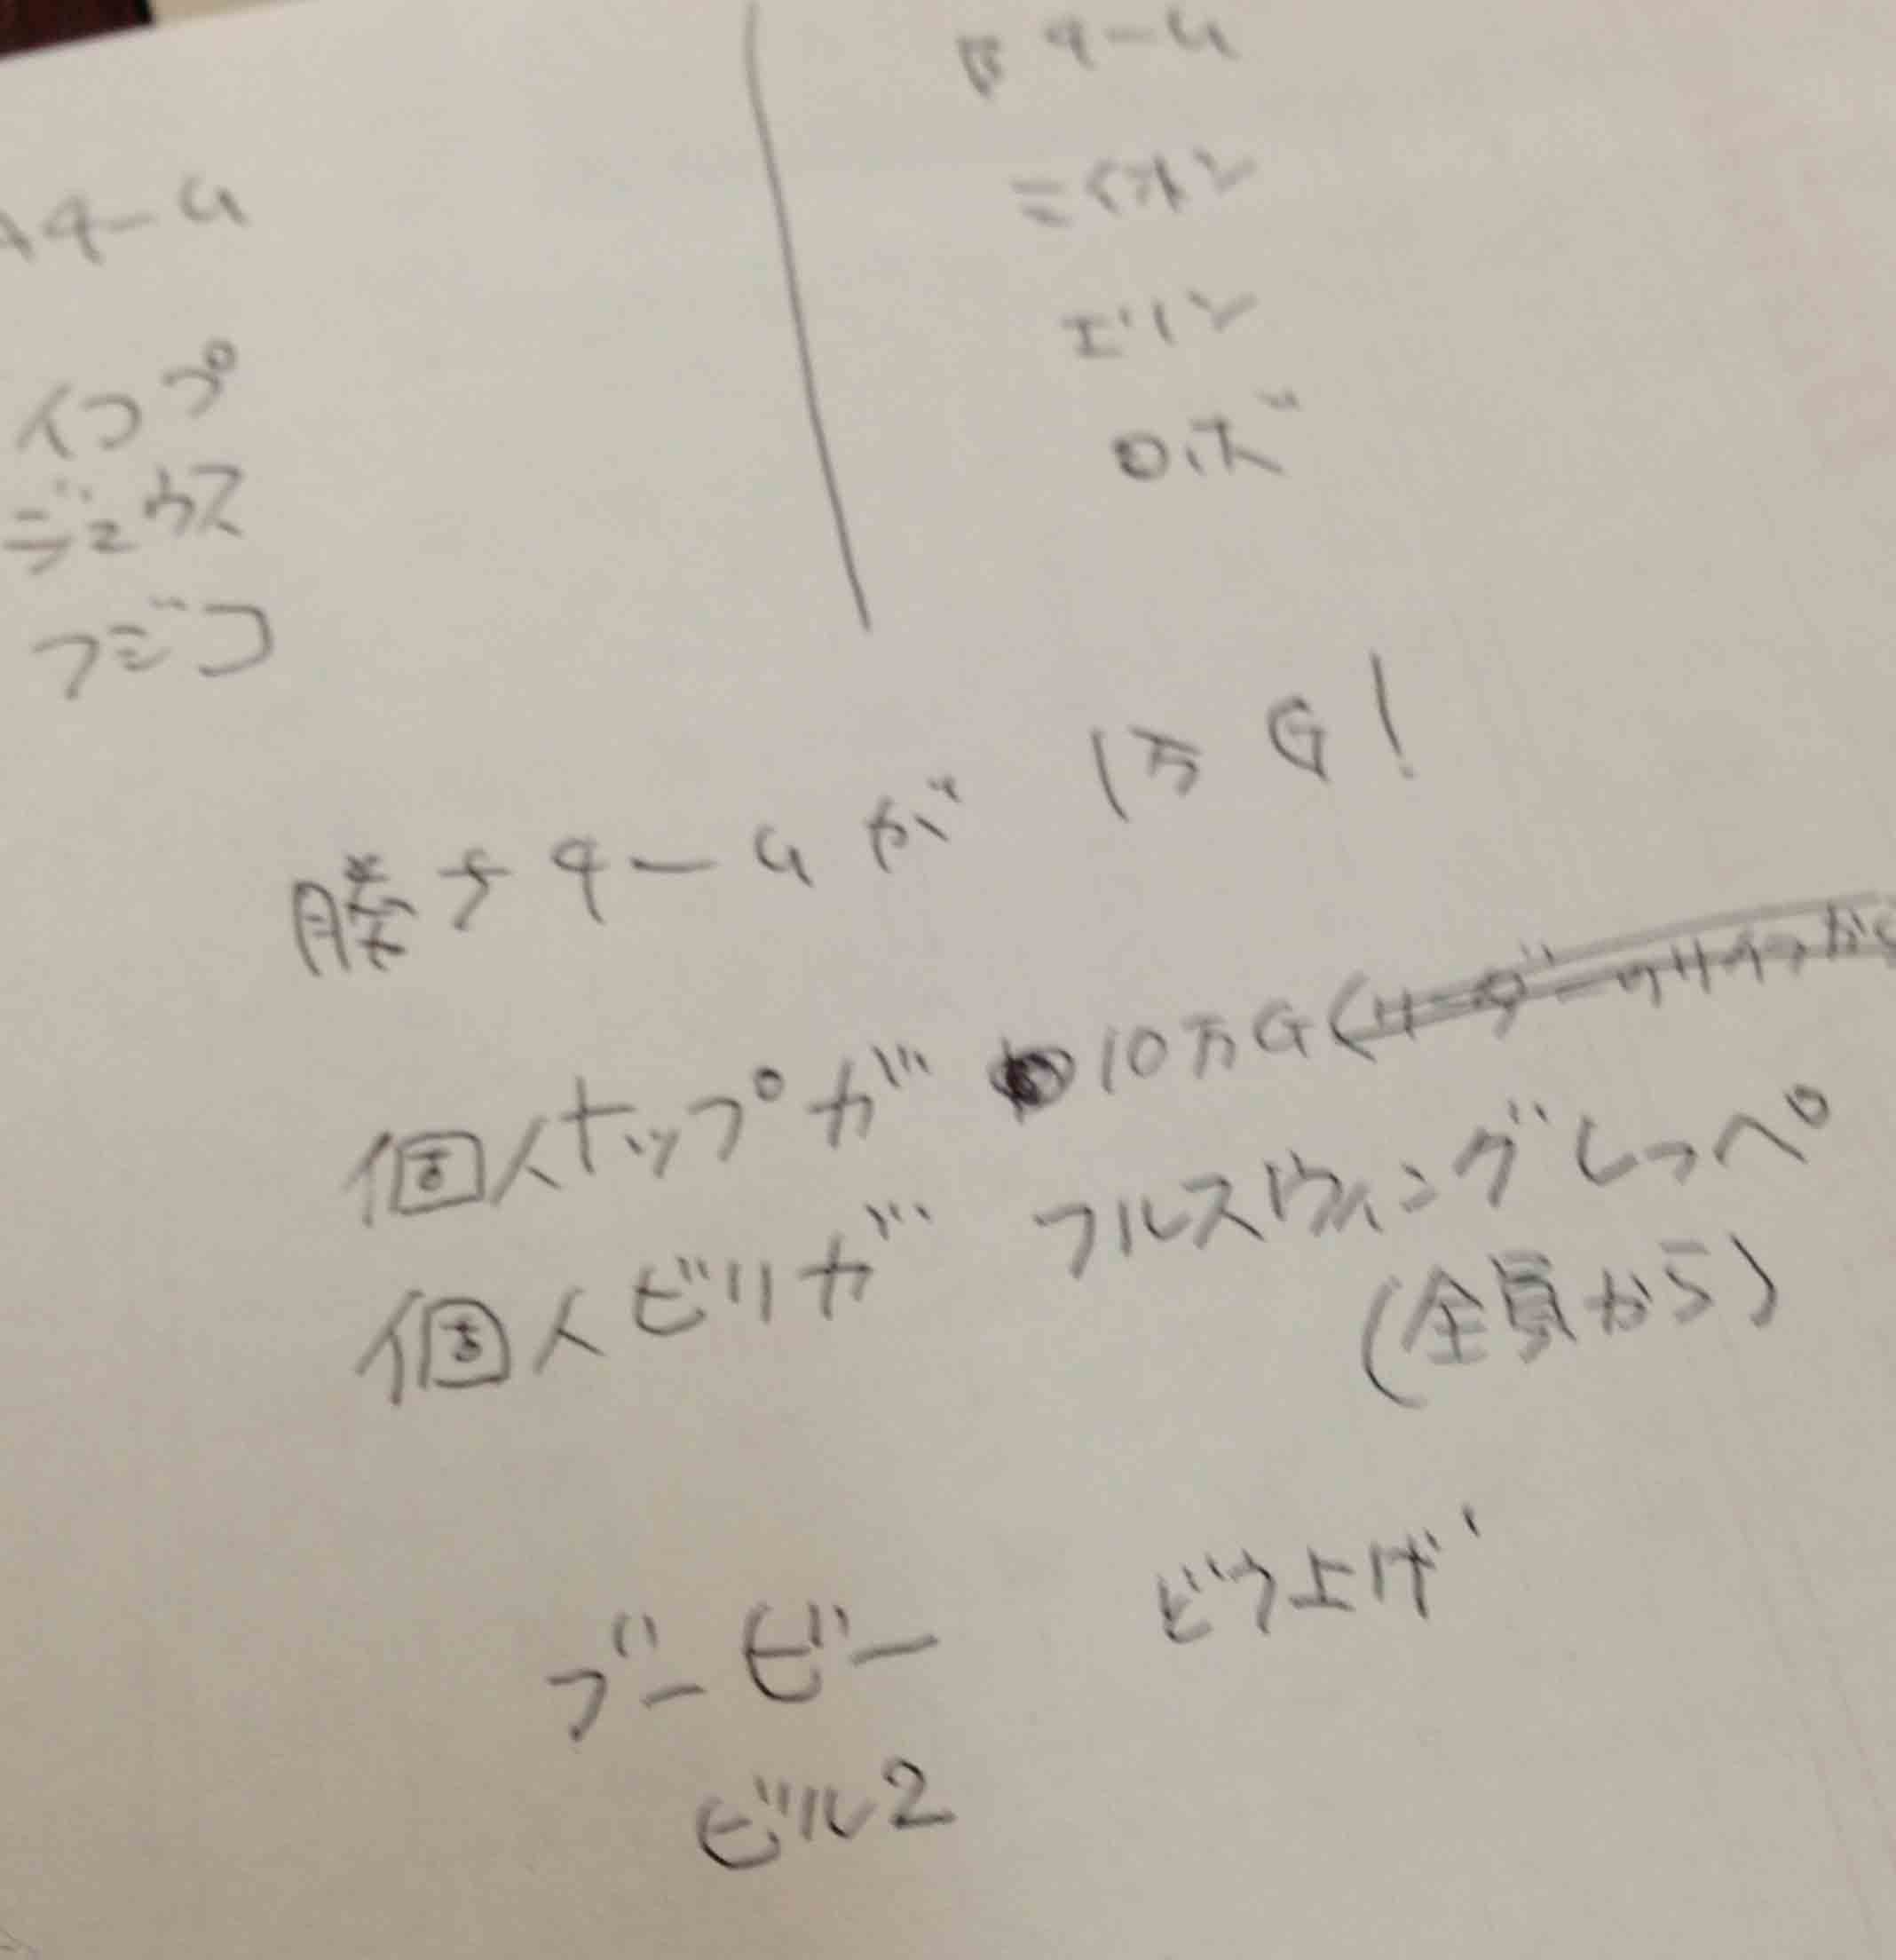 Aチーム
イップ
ジュウス
フジコ
Bチーム
ミイホン
エリン
ロボ
勝チチームが 1万G!
個人トップが 10万G(リーダー
個人ビリが フルスウィングしっペ
(全員から)
ブービー ビラ上げ
ビル2